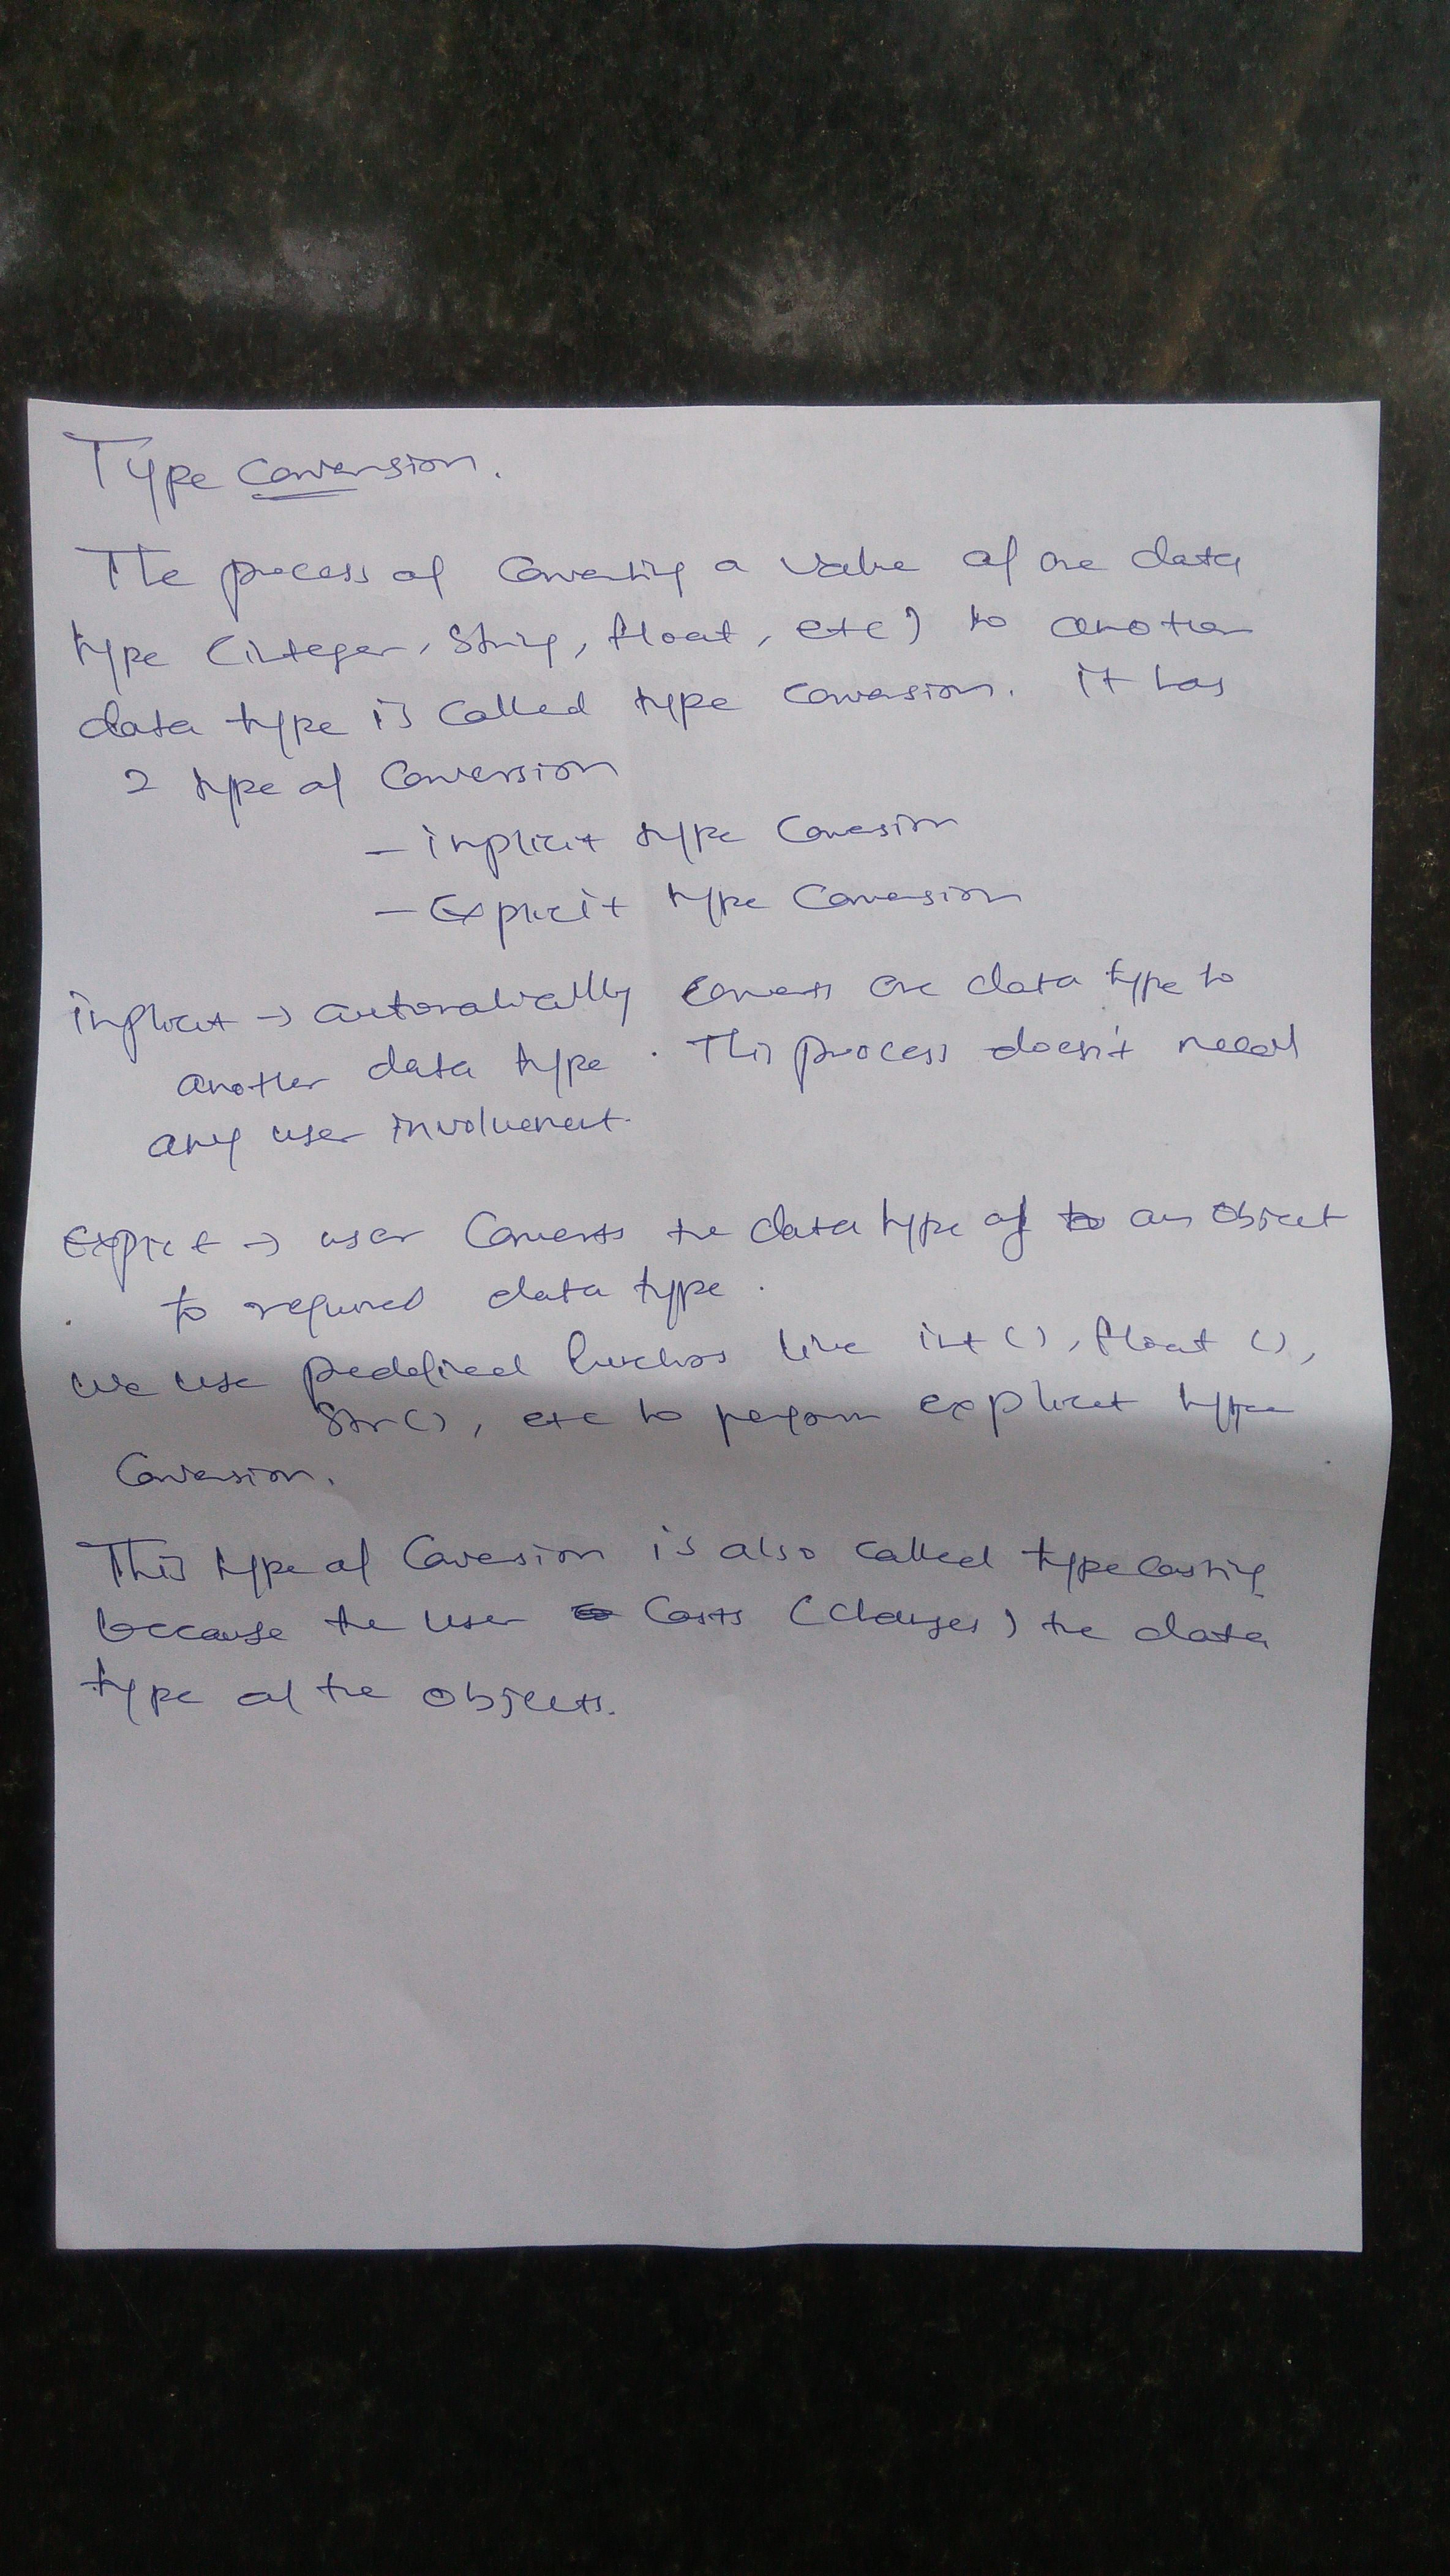 Type conversion.
The process of converting a value of one data
type (integer, string, float, etc) to another
data type is called type conversion. it has
2 type of Conversion
- implicit type Conversion
- Explicit type Conversion
implicit → automatically converts one data type to
another data type. This process doesn't need
any user involvement.
Explicit → user Converts the data type of to an object
to required data type.
we use predefined functions like int(), float(),
str(), etc to perform explicit type
Conversion.
This type of Conversion is also called typecasting
because the user casts (changes) the data
type of the objects.